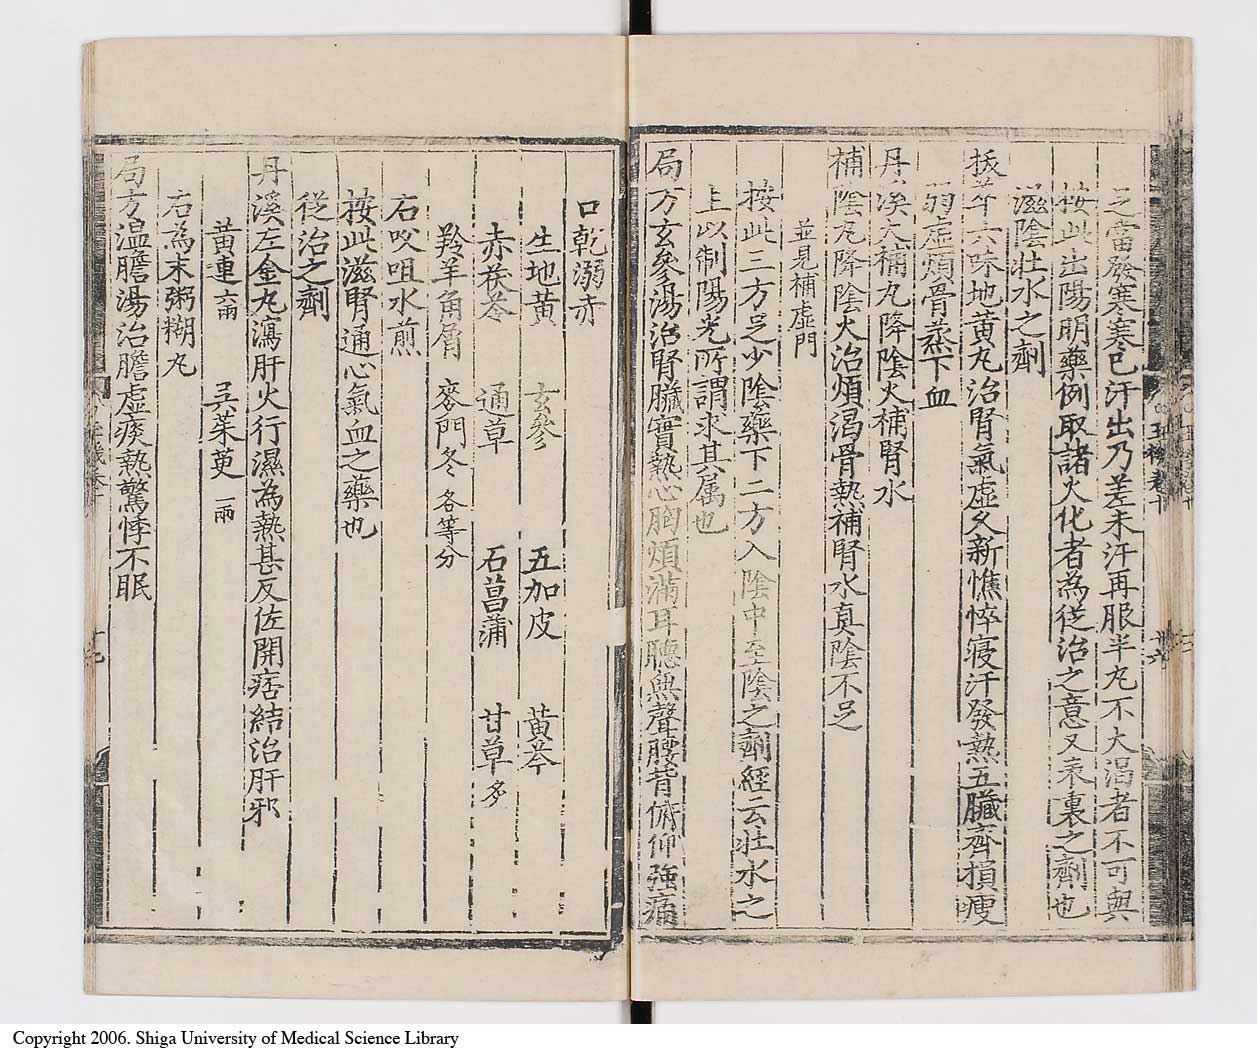 之當發寒寒已汗出乃差未汗再服半丸不大渴者不可與
按此出陽明藥例取諸火化者為從治之意又表裏之劑也
滋陰壯水之劑
拔萃六味地黃丸治腎氣虛久新憔悴寢汗發熱五臟齊損瘦
弱虛煩骨蒸下血
丹溪大補丸降陰火補腎水
補陰丸降陰火治煩渴骨熱補腎水真陰不足
並見補虛門
按此三方足少陰藥下二方入陰中至陰之劑經云壯水之
主以制陽光所謂求其属也
局方玄參湯治腎臟實熱心胸煩滿耳聽無聲腰背俯仰強痛
口乾溺赤
生地黃 玄參 五加皮 黃芩
赤茯苓 通草 石菖蒲 甘草多
羚羊角屑 麥門冬各等分
右㕮咀水煎
按此滋腎通心氣血之藥也
從治之劑
丹溪左金丸瀉肝火行濕為熱甚反佐開痞結治肝邪
黃連六兩 吳茱萸一兩
右為末粥糊丸
局方溫膽湯治膽虛痰熱驚悸不眠
Copyright 2006. Shiga University of Medical Science Library